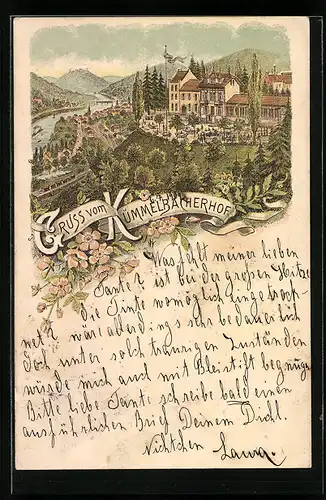 Gruss vom Kümmelbacherhof
Was fehlt meiner lieben
Tante? ist bei der großen Hitze
die Tinte womöglich eingetrock-
net? wäre allerdings sehr bedauerlich
doch unter solch traurigen Zuständen
würde mich auch mit Bleistift begnügen
Bitte liebe Tante schreibe bald einen
ausführlichen Brief Deinem Dichl.
Nichtchen